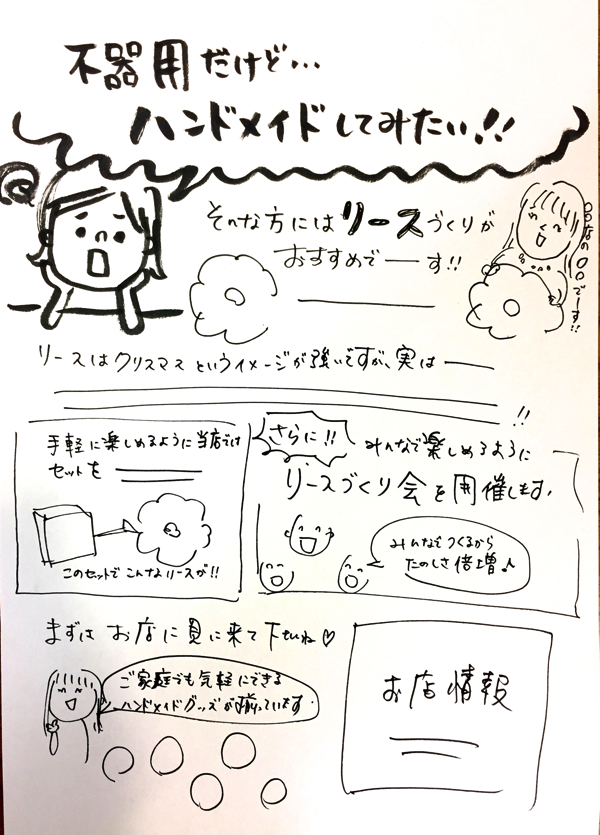 不器用だけど…
ハンドメイドしてみたい!!
そんな方にはリースづくりが
おすすめでーす!!
〇〇店の〇〇でーす!!
リースはクリスマスというイメージが強いですが、実は
!!
手軽に楽しめるように当店では
セットを
このセットでこんなリースが!!
さらに!!
みんなで楽しめるように
リースづくり会を開催します。
みんなでつくるから
たのしさ倍増♪
まずは お店に見に来て下さいね♡
ご家庭でも気軽にできる
ハンドメイドグッズが揃っています。
お店情報